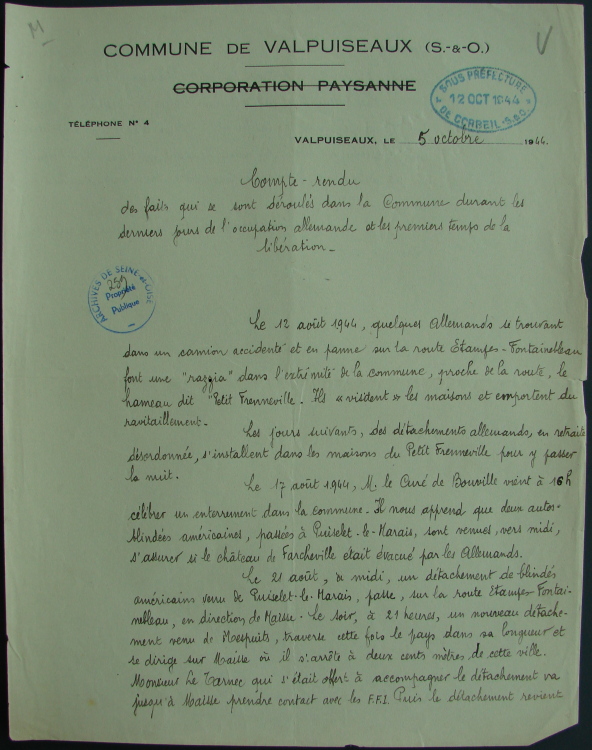 M
V
COMMUNE DE VALPUISEAUX (S.-&-O.)
CORPORATION PAYSANNE
SOUS PRÉFECTURE
12 OCT 1944
DE CORBEIL - S.&O.
TÉLÉPHONE N° 4
VALPUISEAUX, LE 5 octobre 1944.
Compte-rendu
des faits qui se sont déroulés dans la Commune durant les
derniers jours de l'occupation allemande et les premiers temps de la
libération -
ARCHIVES DE SEINE-et-OISE
259
Propriété
Publique
Le 12 août 1944, quelques Allemands se trouvant
dans un camion accidenté et en panne sur la route Etampes-Fontainebleau
font une "razzia" dans l'extrémité de la commune, proche de la route, le
hameau dit "Petit Frenneville. Ils « visitent » les maisons et emportent du
ravitaillement.
Les jours suivants, des détachements allemands, en retraite
désordonnée, s'installent dans les maisons du Petit Frenneville pour y passer
la nuit.
Le 17 août 1944, M. le Curé de Bouville vient à 16h
célébrer un enterrement dans la commune. Il nous apprend que deux autos-
blindées américaines, passées à Puiselet-le-Marais, sont venues, vers midi,
s'assurer si le château de Farcheville était évacué par les Allemands.
Le 21 août, à midi, un détachement de blindés
américains venu de Puiselet-le-Marais, passe, sur la route Etampes-Fontai-
nebleau, en direction de Maisse. Le soir, à 21 heures, un nouveau détache-
ment venu de Mespuits, traverse cette fois le pays dans sa longueur et
se dirige sur Maisse où il s'arrête à deux cents mètres de cette ville.
Monsieur Le Tarnec qui s'était offert à accompagner le détachement va
jusqu'à Maisse prendre contact avec les F.F.I. Puis le détachement revient